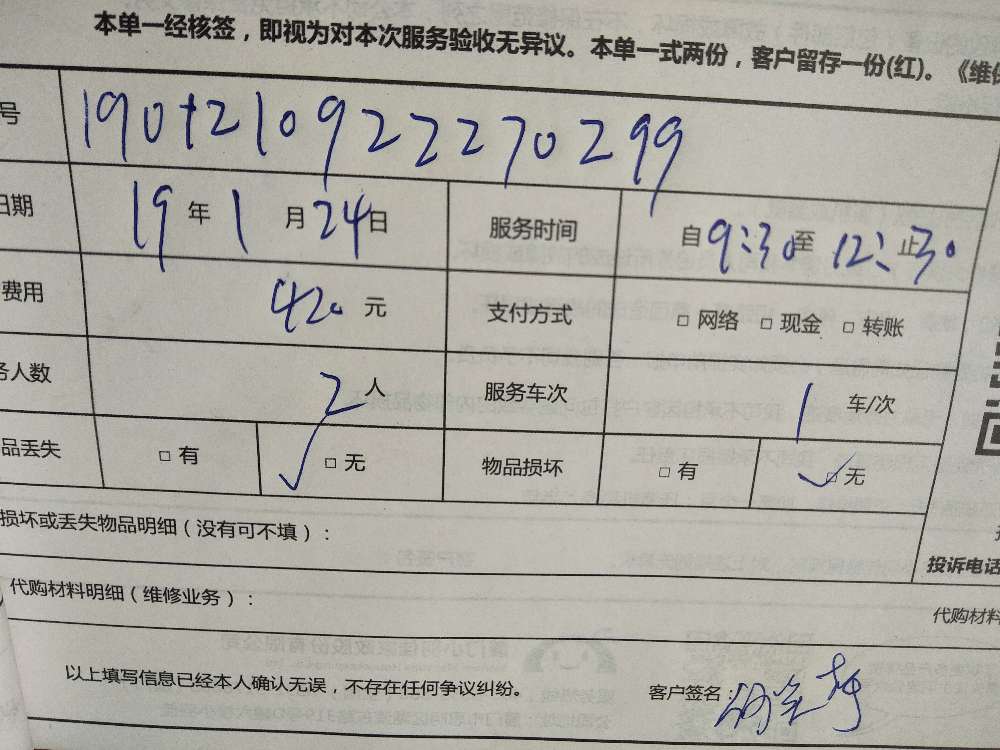 本单一经核签，即视为对本次服务验收无异议。本单一式两份，客户留存一份(红)。《维保
号 190121092270299
日期 19年1月24日 服务时间 自9:30至12:30止
费用 420元 支付方式 □ 网络 □ 现金 □ 转账
务人数 2人 服务车次 1 车/次
品丢失 □ 有 ✓ □ 无 物品损坏 □ 有 ✓ □ 无
损坏或丢失物品明细（没有可不填）：
投诉电话
代购材料明细（维修业务）：
代购材料
以上填写信息已经本人确认无误，不存在任何争议纠纷。 客户签名：